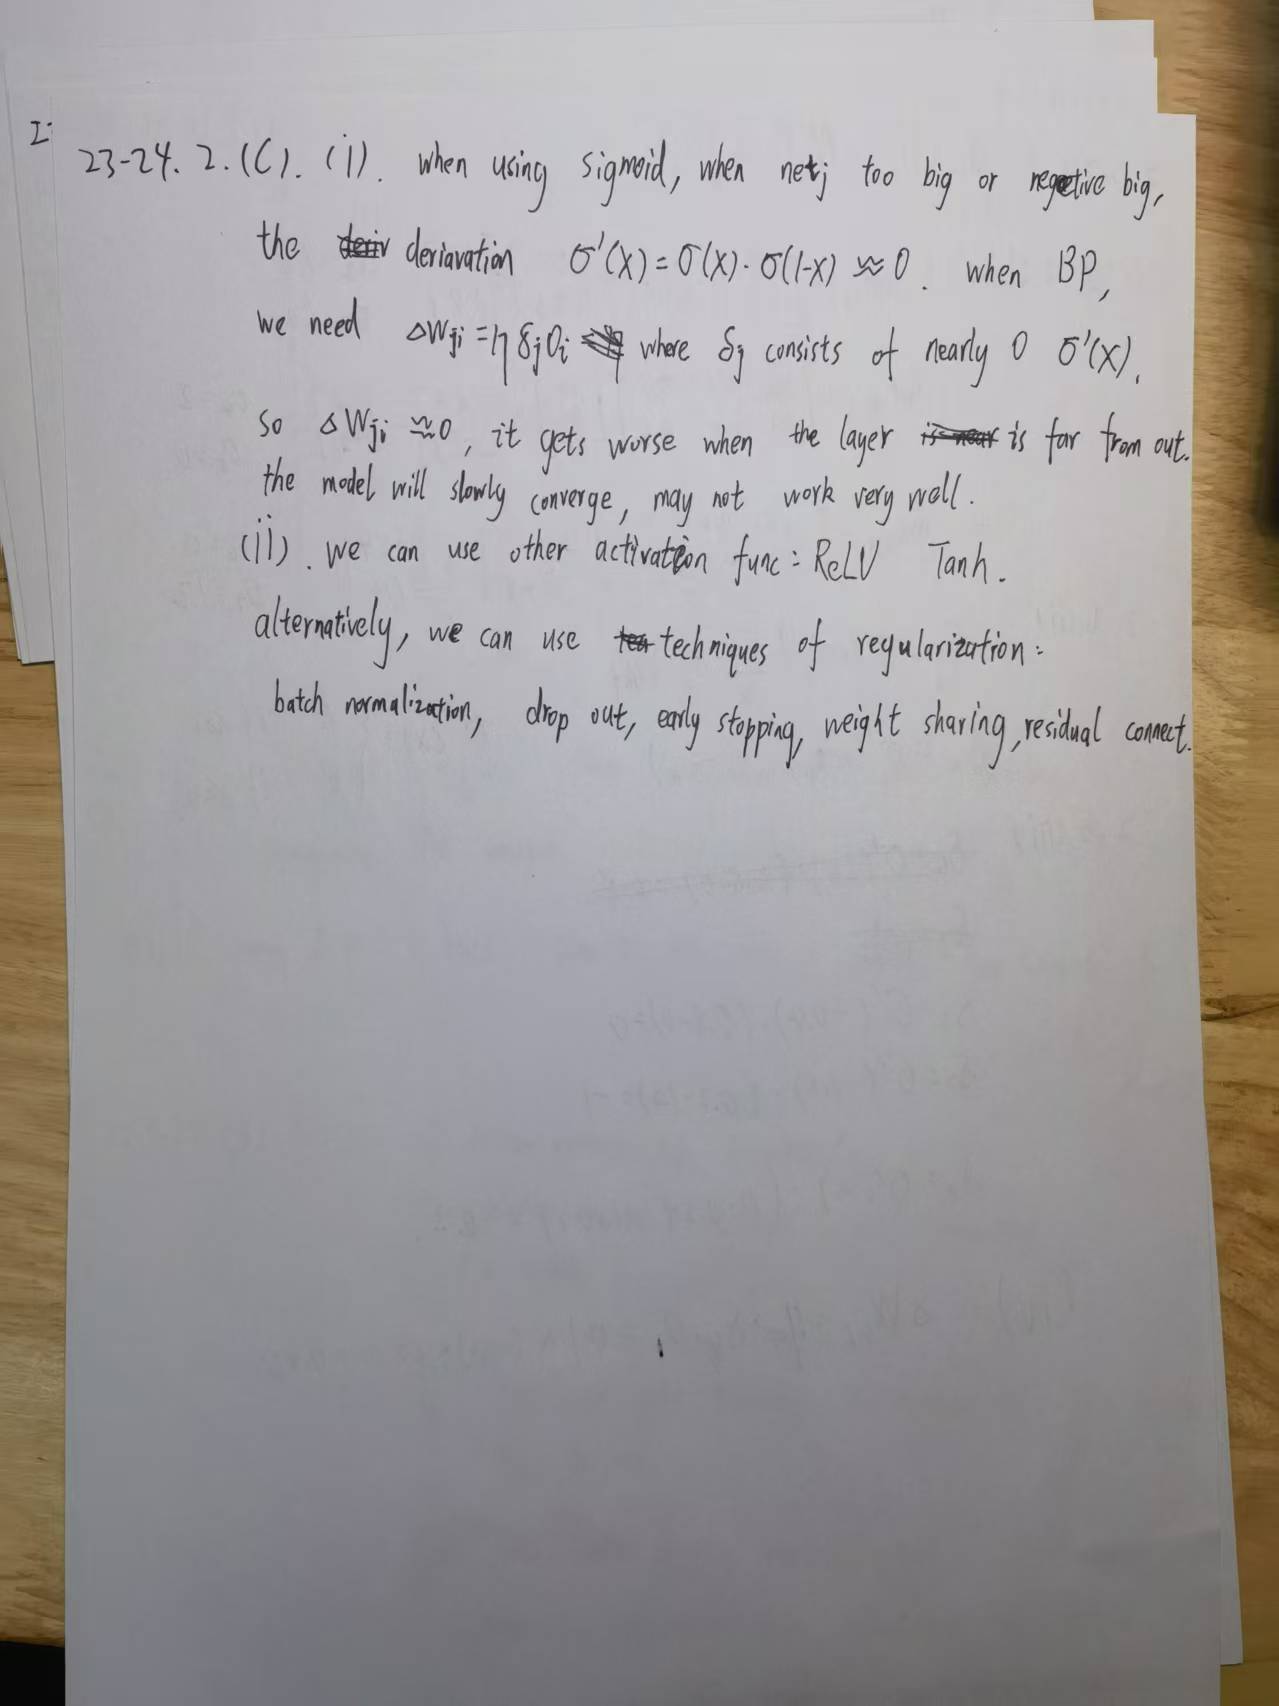 I:
23-24. 2. (C). (i). when using sigmoid, when netj too big or negetive big,
the deriavation σ'(x) = σ(x)·σ(1-x) ≈ 0. when BP,
we need ΔWji = η δj Oi where δj consists of nearly 0 σ'(x).
so ΔWji ≈ 0, it gets worse when the layer is far from out.
the model will slowly converge, may not work very well.
(ii). we can use other activation func: ReLU Tanh.
alternatively, we can use techniques of regularization:
batch normalization, drop out, early stopping, weight sharing, residual connect.